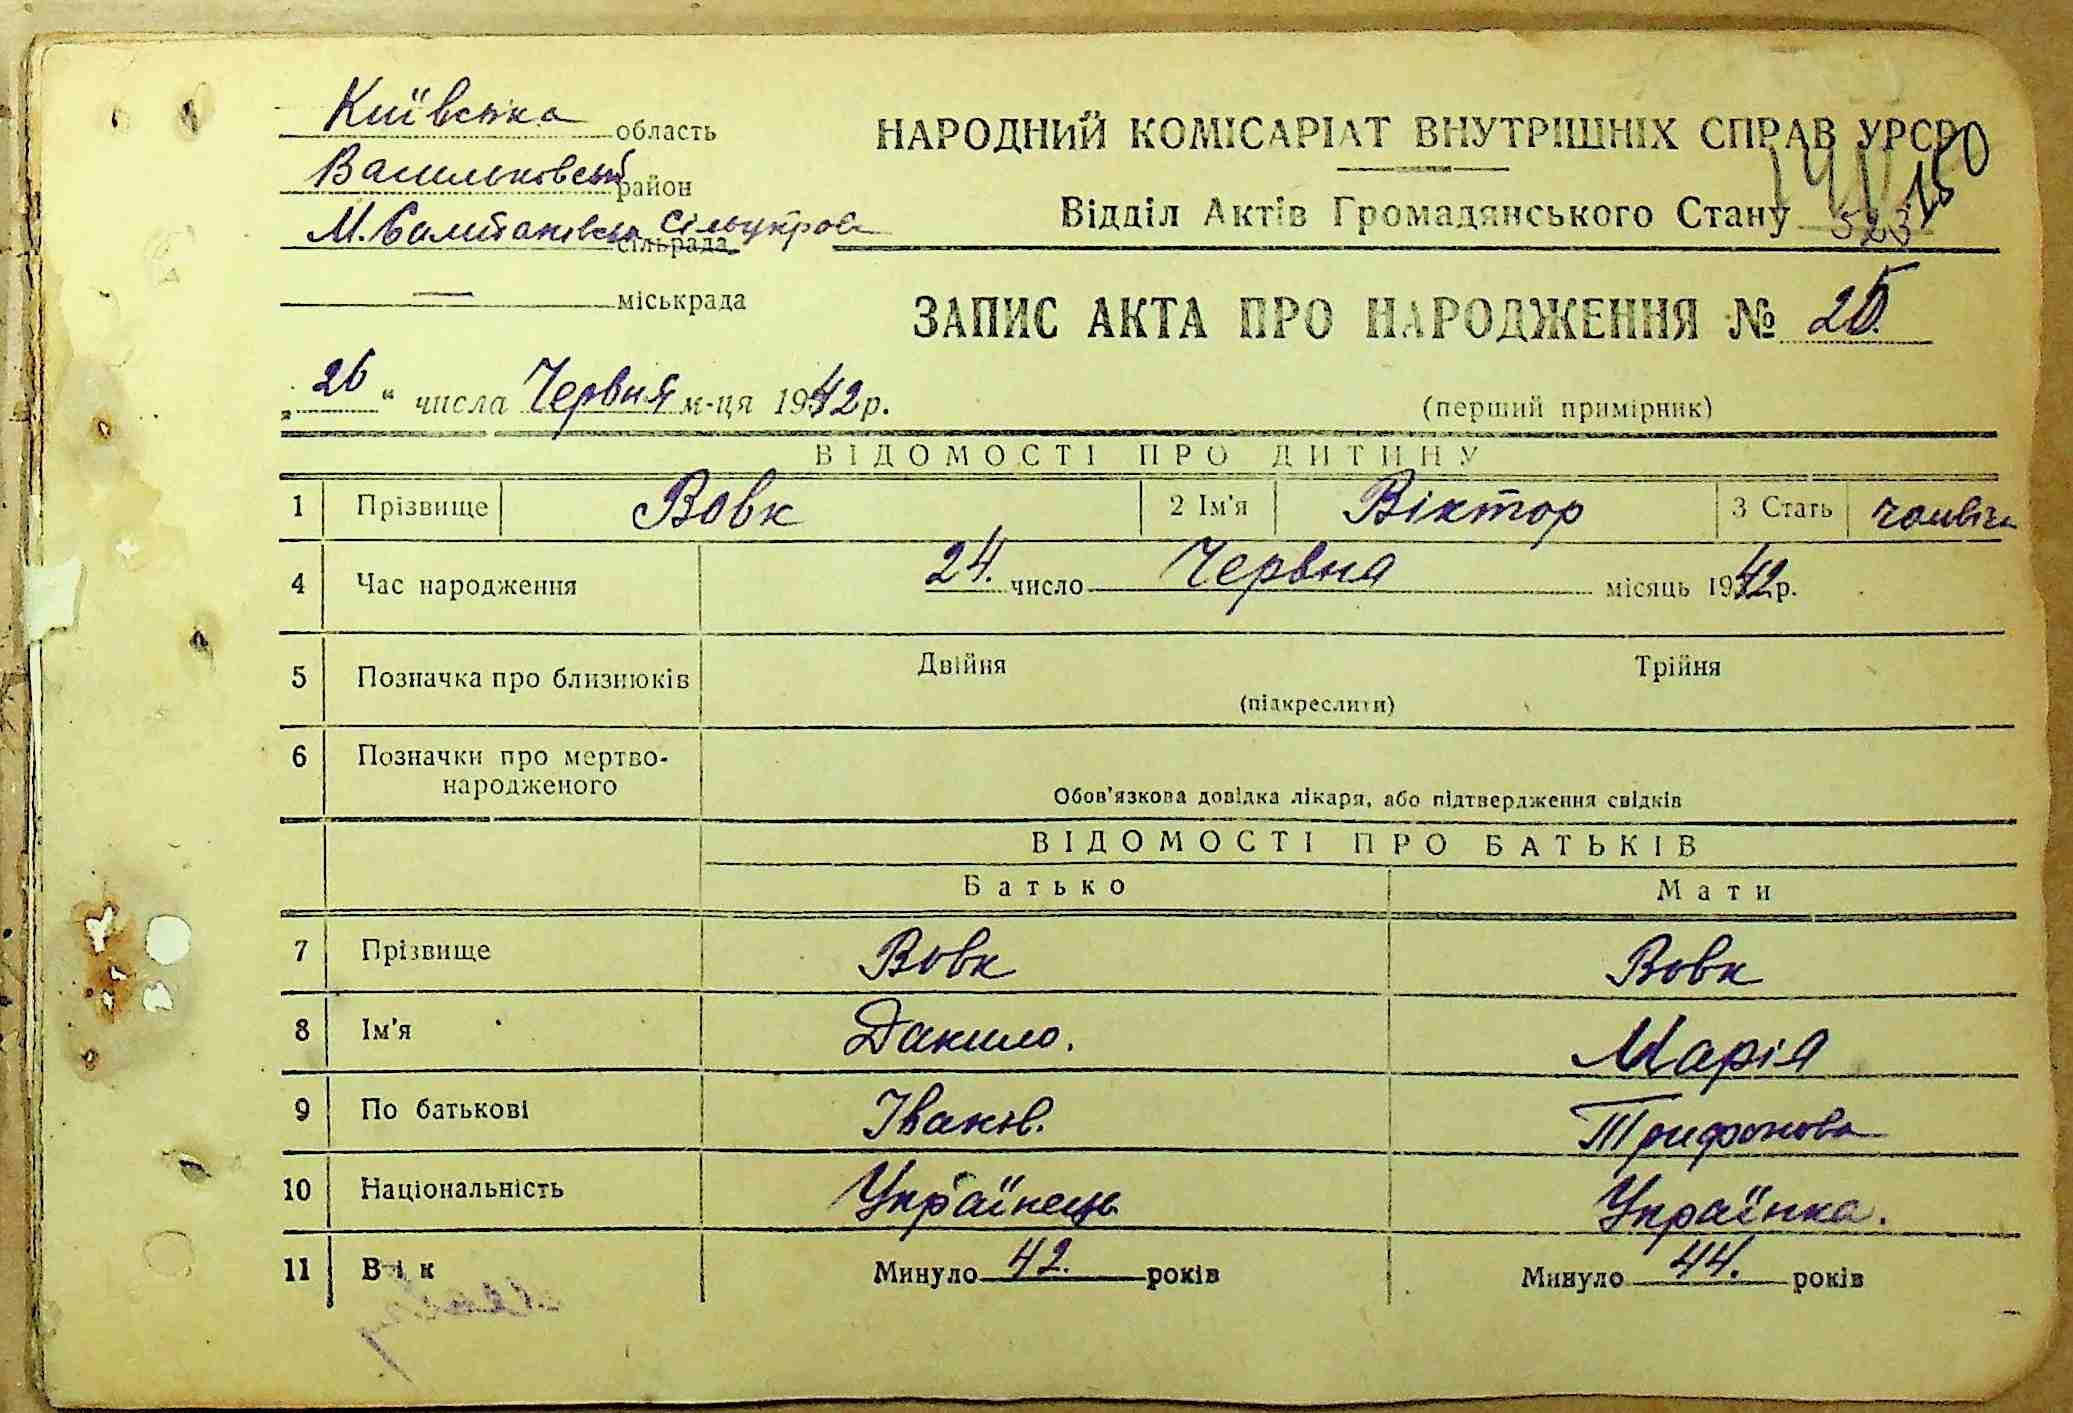 Київська область
Васильковський район
М. Салтанівська сільуправа сільрада
— міськрада
НАРОДНИЙ КОМІСАРІАТ ВНУТРІШНІХ СПРАВ УРСР
150
Відділ Актів Громадянського Стану
523
ЗАПИС АКТА ПРО НАРОДЖЕННЯ № 25
„26“ числа Червня м-ця 1942 р.
(перший примірник)
ВІДОМОСТІ ПРО ДИТИНУ
1 Прізвище Вовк 2 Ім'я Віктор 3 Стать чоловіч
4 Час народження 24. число Червня місяць 1942 р.
5 Позначка про близнюків Двійня Трійня
(підкреслити)
6 Позначки про мертво-
народженого
Обов'язкова довідка лікаря, або підтвердження свідків
ВІДОМОСТІ ПРО БАТЬКІВ
Батько Мати
7 Прізвище Вовк Вовк
8 Ім'я Данило. Марія
9 По батькові Іванов. Трифонова
10 Національність Українець Українка.
11 Вік Минуло 42. років Минуло 44. років